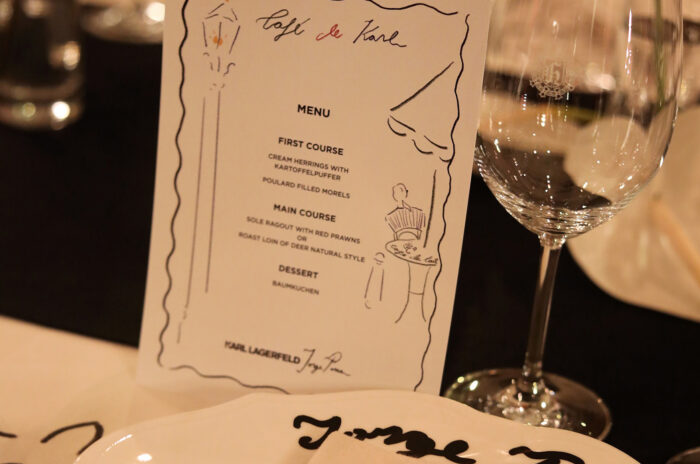 Café de Karl
MENU
FIRST COURSE
CREAM HERRINGS WITH
KARTOFFELPUFFER
POULARD FILLED MORELS
MAIN COURSE
SOLE RAGOUT WITH RED PRAWNS
OR
ROAST LOIN OF DEER NATURAL STYLE
Café de Karl
DESSERT
BAUMKUCHEN
KARL LAGERFELD